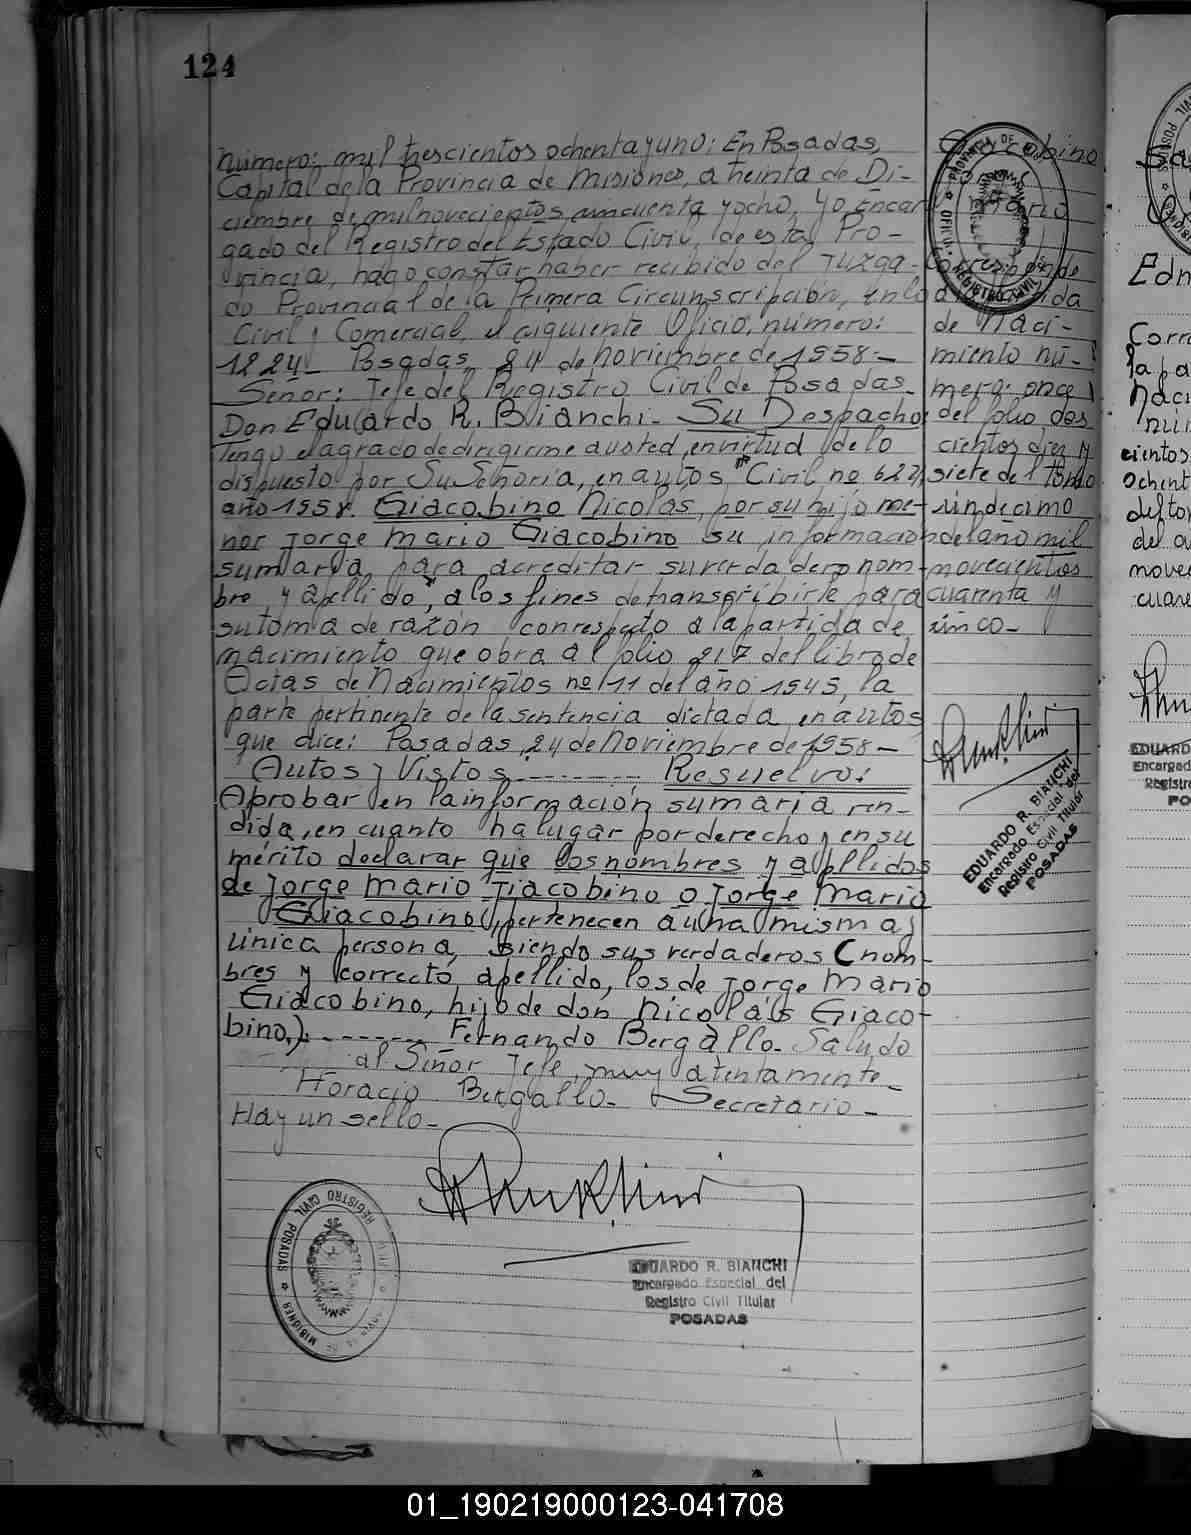 124
Número: mil trescientos ochenta y uno: En Posadas,
Capital de la Provincia de Misiones, a treinta de Di-
ciembre de mil novecientos cincuenta y ocho, yo Encar-
gado del Registro del Estado Civil, de esta Pro-
vincia, hago constar haber recibido del Juzga-
do Provincial de la Primera Circunscripción, en lo
Civil y Comercial, el siguiente Oficio, número:
1224- Posadas, 24 de noviembre de 1958-
Señor: Jefe del Registro Civil de Posadas-
Don Eduardo R. Bianchi- Su Despacho:
Tengo el agrado de dirigirme a usted, en virtud de lo
dispuesto por Su Señoría, en autos Civil no 622,
año 1958. Giacobino Nicolás, por su hijo me-
nor Jorge Mario Giacobino su información
sumaria para acreditar su verdadero nom-
bre y apellido, a los fines de transcribirle para
su toma de razón con respecto a la partida de
nacimiento que obra al folio 217 del libro de
Actas de Nacimientos no 11 del año 1945, la
parte pertinente de la sentencia dictada en autos
que dice: Posadas, 24 de Noviembre de 1958-
Autos y Vistos:-------- Resuelvo:
Aprobar en la información sumaria ren-
dida, en cuanto ha lugar por derecho y en su
mérito declarar que los nombres y apellidos
de Jorge Mario Jiacobino o Jorge Mario
Giacobino, pertenecen a una misma y
única persona, siendo sus verdaderos (nom-
bres y correcto apellido, los de Jorge Mario
Giacobino, hijo de don Nicolás Giaco-
bino.)-------- Fernando Bergallo. Saludo
al Señor Jefe, muy atentamente-
Horacio Bergallo- Secretario-
Hay un sello-
REGISTRO CIVIL POSADAS
MISIONES
EDUARDO R. BIANCHI
Encargado Especial del
Registro Civil Titular
POSADAS
Giacobino
Mario
Corresponde
a la partida
de Naci-
miento nú-
mero: once
del folio dos
cientos diez y
siete del tomo
undécimo
del año mil
novecientos
cuarenta y
cinco-
PROVINCIA DE
REGISTRO CIVIL
EDUARDO R. BIANCHI
Encargado Especial del
Registro Civil Titular
POSADAS
Edn
Corre
la pa
Naci
núm
cientos
ochent
del tom
del a
nove
cuare
EDUARD
Encargad
Registr
PO
01_190219000123-041708